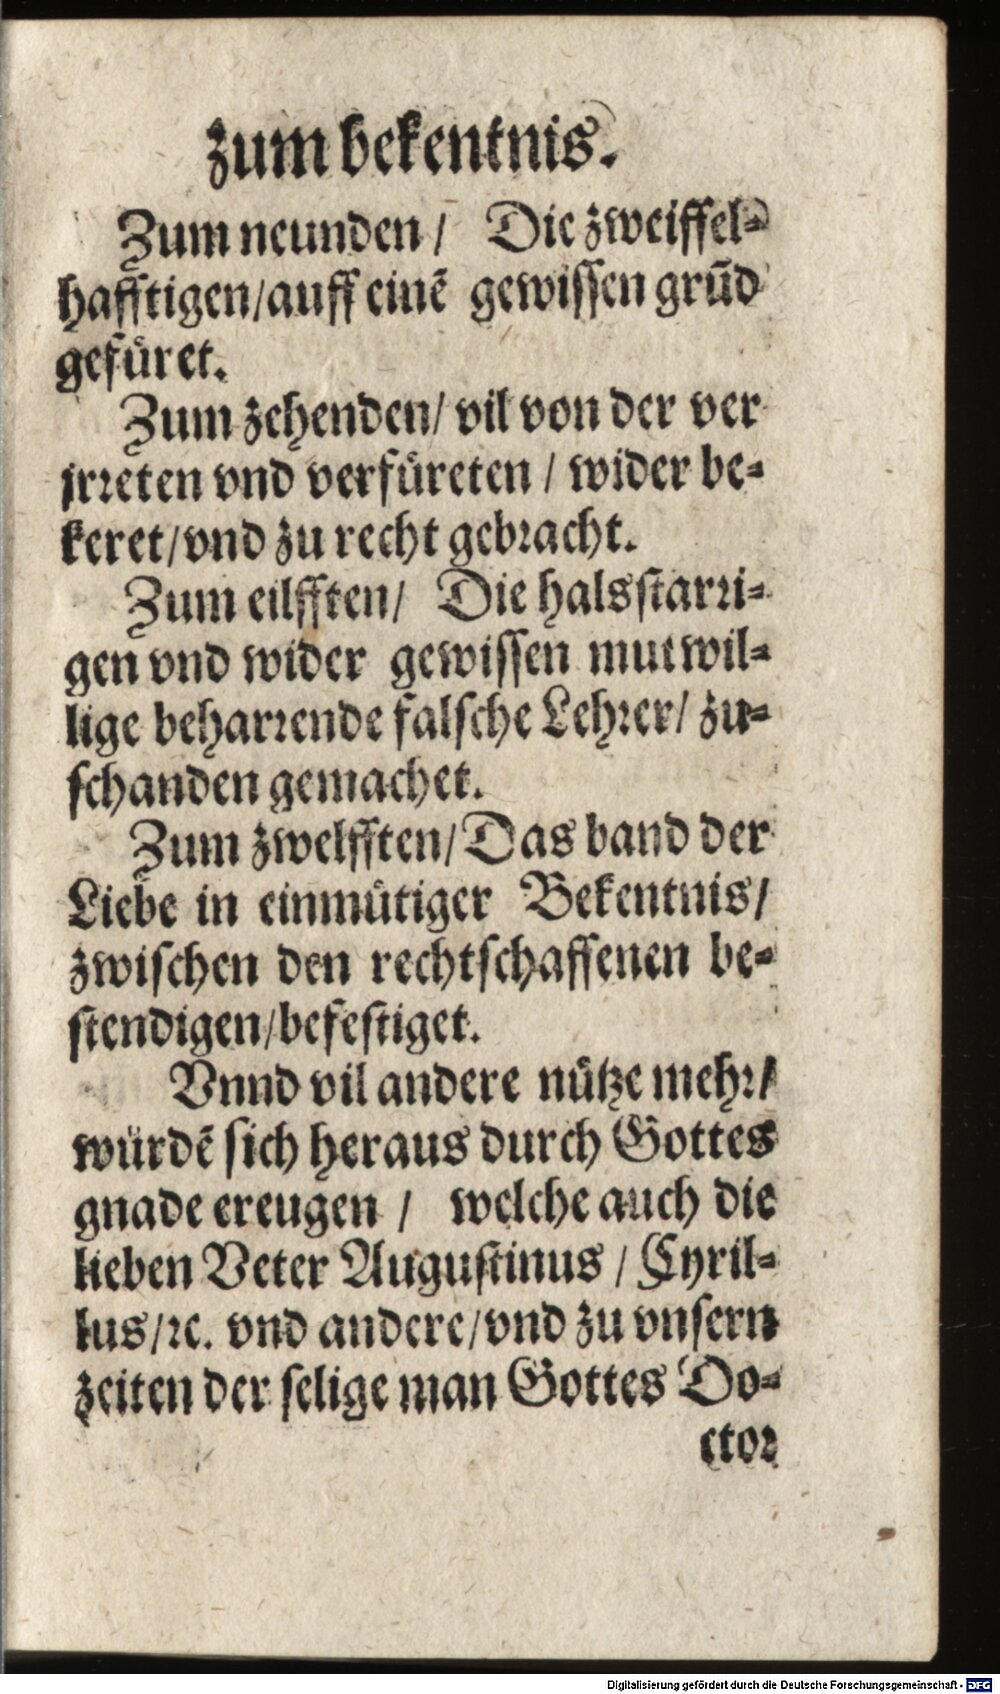 zum bekentnis.
Zum neunden / Die zweiffel-
hafftigen/auff einē gewissen grūd
gefüret.
Zum zehenden/ vil von der ver
jrreten vnd verfüreten / wider be-
keret/vnd zu recht gebracht.
Zum eilfften/ Die halsstarri-
gen vnd wider gewissen mutwil-
lige beharrende falsche Lehrer/ zu-
schanden gemachet.
Zum zwelfften/Das band der
Liebe in einmütiger Bekentnis/
zwischen den rechtschaffenen be-
stendigen/befestiget.
Vnnd vil andere nütze mehr/
würdē sich heraus durch Gottes
gnade ereugen / welche auch die
lieben Veter Augustinus / Cyril-
lus/ꝛc. vnd andere/vnd zu vnsern
zeiten der selige man Gottes Do-
ctor
Digitalisierung gefördert durch die Deutsche Forschungsgemeinschaft - DFG